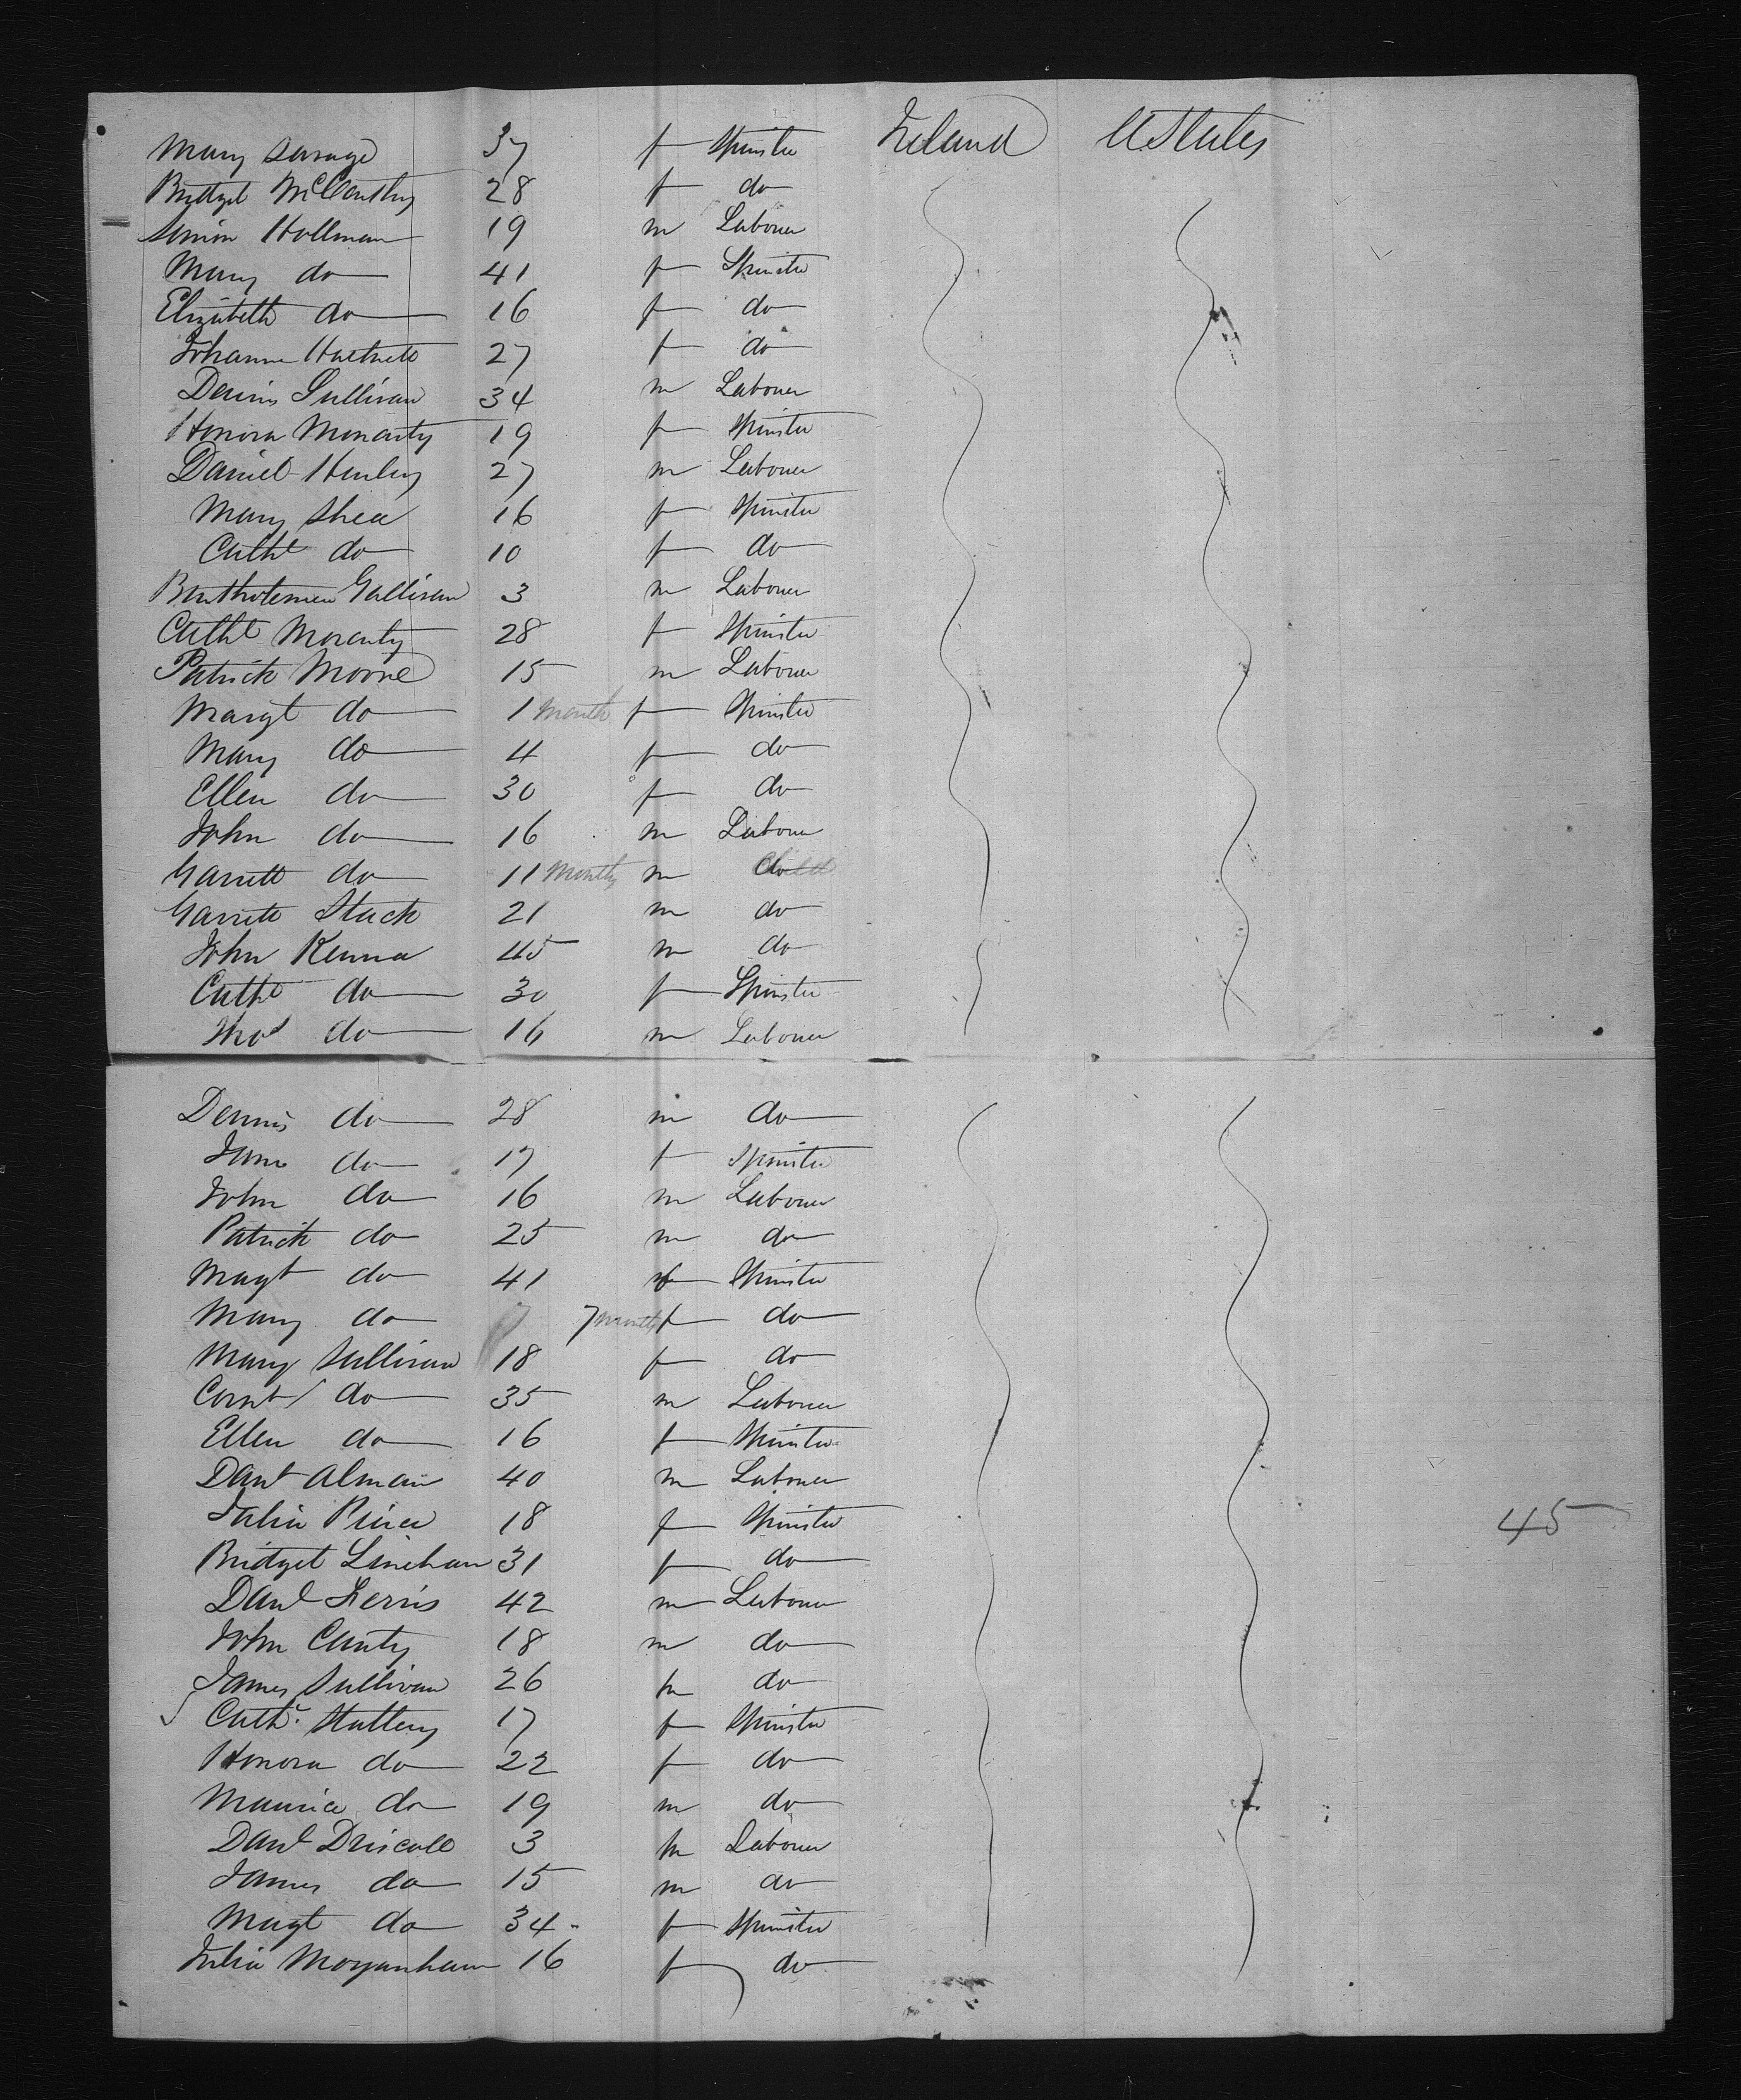 Mary Savage 37 f Spinster Ireland UStates
Bridget McCarthy 28 f do
Simon Hollman 19 m Labourer
Mary do 41 f Spinster
Elizabeth do 16 f do
Johanna Hartnett 27 f do
Dennis Sullivan 34 m Labourer
Honora Moriarty 19 f Spinster
Daniel Henley 27 m Labourer
Mary Shea 16 f Spinster
Cathe do 10 f do
Bartholemew Gallivan 3 m Labourer
Cathe Moriarty 28 f Spinster
Patrick Moore 15 m Labourer
Margt do 1 month f Spinster
Mary do 4 f do
Ellen do 30 f do
John do 16 m Labourer
Garrett do 11 Months m Child
Garrett Stack 21 m do
John Kenna 45 m do
Cathe do 30 f Spinster
Thos do 16 m Labourer
Dennis do 28 m do
Jane do 17 f Spinster
John do 16 m Labourer
Patrick do 25 m do
Magt do 41 f Spinster
Mary do 7 months f do
Mary Sullivan 18 f do
Corns do 35 m Labourer
Ellen do 16 f Spinster
Danl Alman 40 m Labourer
Julia Peirce 18 f Spinster 45
Bridget Linehan 31 f do
Danl Ferris 42 m Labourer
John Canty 18 m do
James Sullivan 26 m do
Cathe Slattery 17 f Spinster
Honora do 22 f do
Maurice do 19 m do
Danl Driscoll 3 m Labourer
James do 15 m do
Magt do 34 f Spinster
Julia Moynahan 16 f do